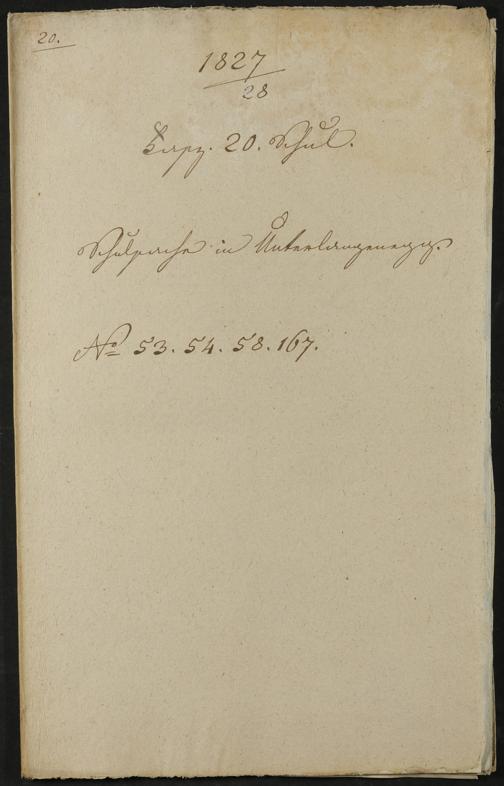 20.
1827
28
Fasz. 20. Schul.
Schulsache in Unterlangenegg.
No 53. 54. 58. 167.